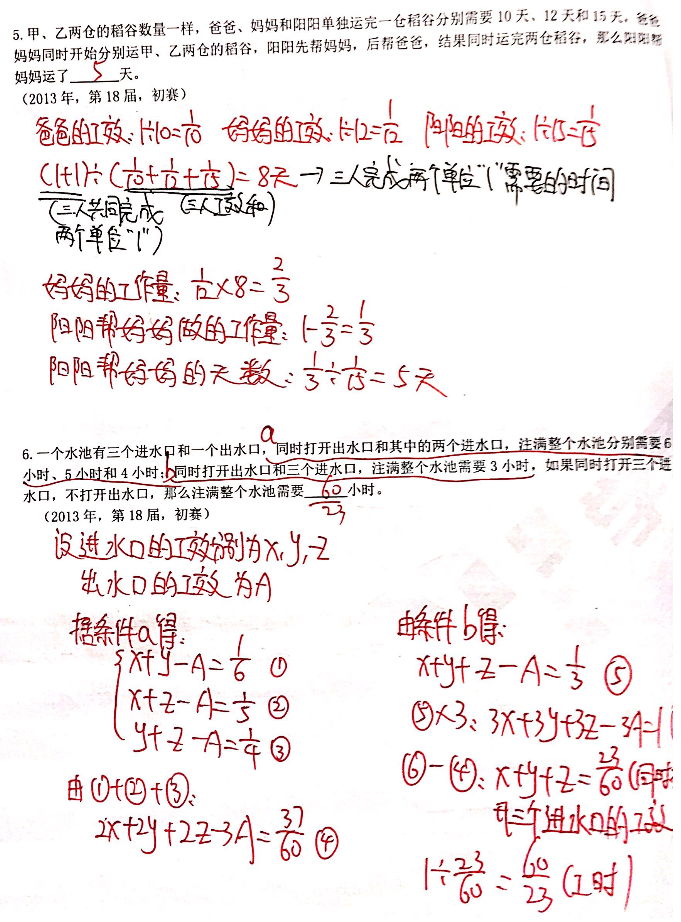 5.甲、乙两仓的稻谷数量一样，爸爸、妈妈和阳阳单独运完一仓稻谷分别需要 10 天、12 天和 15 天，爸爸
妈妈同时开始分别运甲、乙两仓的稻谷，阳阳先帮妈妈，后帮爸爸，结果同时运完两仓稻谷，那么阳阳帮
妈妈运了 5 天。
（2013 年，第 18 届，初赛）
爸爸的工效:1÷10=1/10 妈妈的工效:1÷12=1/12 阳阳的工效:1÷15=1/15
(1+1)÷(1/10+1/12+1/15)=8天→三人完成两个单位"1"需要的时间
(三人共同完成 (三人工效和)
两个单位"1")
妈妈的工作量:1/12×8=2/3
阳阳帮妈妈做的工作量:1-2/3=1/3
阳阳帮妈妈的天数:1/3÷1/15=5天
a
6.一个水池有三个进水口和一个出水口，同时打开出水口和其中的两个进水口，注满整个水池分别需要6
小时、5 小时和 4 小时;b同时打开出水口和三个进水口，注满整个水池需要 3 小时，如果同时打开三个进
水口，不打开出水口，那么注满整个水池需要 60/23 小时。
（2013 年，第 18 届，初赛）
设进水口的工效分别为x,y,z
出水口的工效为A
据条件a得:
x+y-A=1/6 ①
x+z-A=1/5 ②
y+z-A=1/4 ③
由①+②+③:
2x+2y+2z-3A=37/60 ④
由条件b得:
x+y+z-A=1/3 ⑤
⑤×3:3x+3y+3z-3A=1
⑥-④:x+y+z=23/60(同时
三个进水口的工效
1÷23/60=60/23(小时)